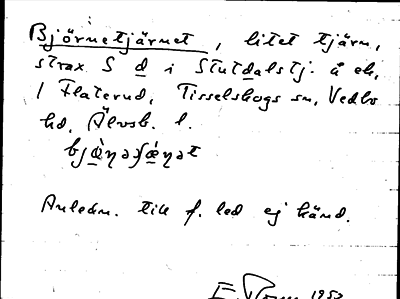 Björnetjärnet, litet tjärn,
strax S d i Stutdalstj. å ek.
/ Flaterud, Tisselskogs sn, Vedbo
hd, Älvsb. l.
Anledn. till f. led ej känd.
1952